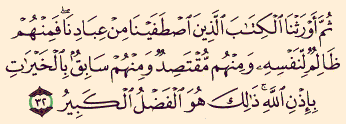 ثُمَّ أَوْرَثْنَا ٱلْكِتَٰبَ ٱلَّذِينَ ٱصْطَفَيْنَا مِنْ عِبَادِنَا ۖ فَمِنْهُمْ
ظَالِمٌ لِّنَفْسِهِۦ وَمِنْهُم مُّقْتَصِدٌ وَمِنْهُمْ سَابِقٌۢ بِٱلْخَيْرَٰتِ
بِإِذْنِ ٱللَّهِ ۚ ذَٰلِكَ هُوَ ٱلْفَضْلُ ٱلْكَبِيرُ ٣٢